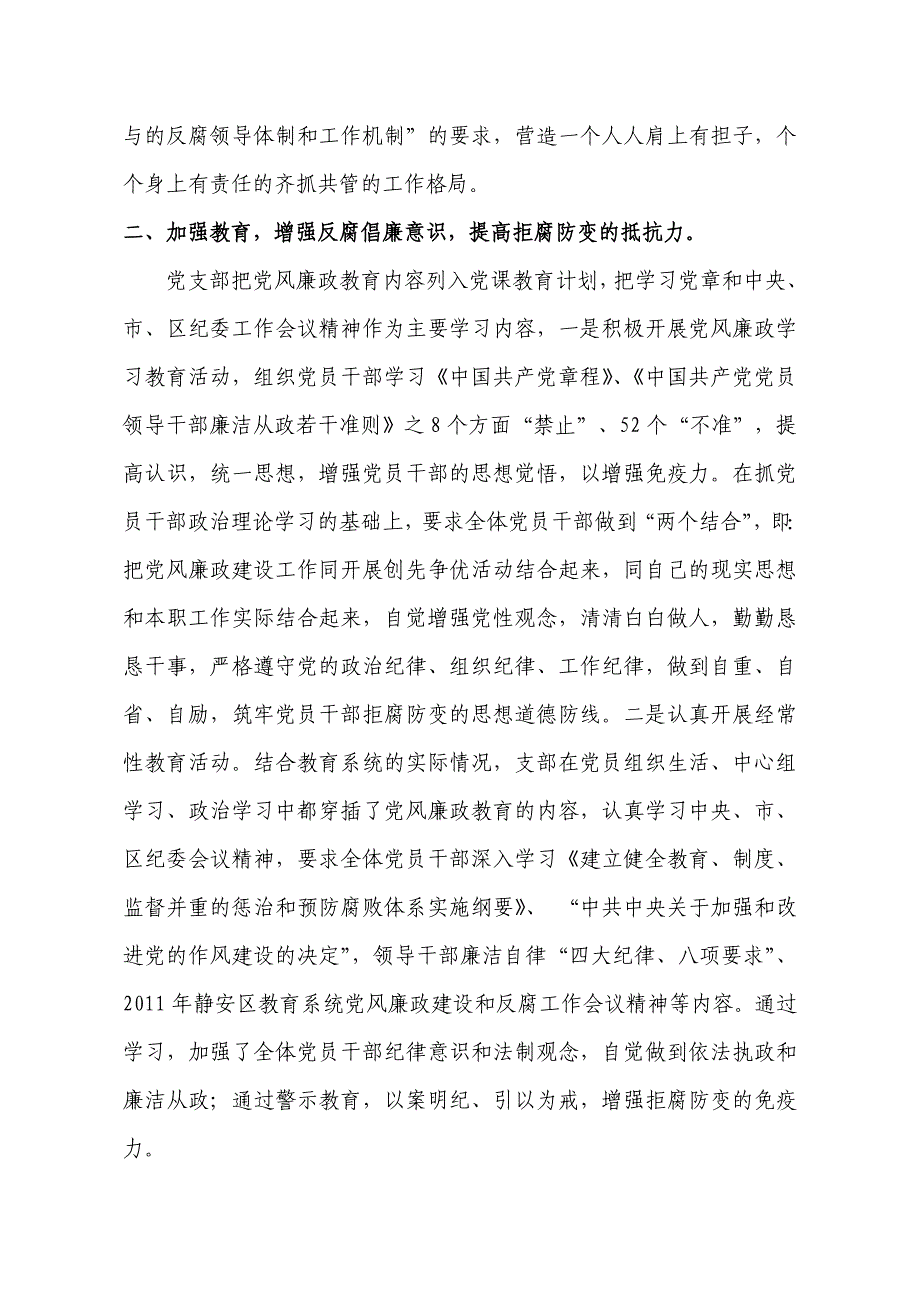 与的反腐领导体制和工作机制”的要求，营造一个人人肩上有担子，个
个身上有责任的齐抓共管的工作格局。
二、加强教育，增强反腐倡廉意识，提高拒腐防变的抵抗力。
党支部把党风廉政教育内容列入党课教育计划，把学习党章和中央、
市、区纪委工作会议精神作为主要学习内容，一是积极开展党风廉政学
习教育活动，组织党员干部学习《中国共产党章程》、《中国共产党党员
领导干部廉洁从政若干准则》之 8 个方面“禁止”、52 个“不准”，提
高认识，统一思想，增强党员干部的思想觉悟，以增强免疫力。在抓党
员干部政治理论学习的基础上，要求全体党员干部做到“两个结合”，即：
把党风廉政建设工作同开展创先争优活动结合起来，同自己的现实思想
和本职工作实际结合起来，自觉增强党性观念，清清白白做人，勤勤恳
恳干事，严格遵守党的政治纪律、组织纪律、工作纪律，做到自重、自
省、自励，筑牢党员干部拒腐防变的思想道德防线。二是认真开展经常
性教育活动。结合教育系统的实际情况，支部在党员组织生活、中心组
学习、政治学习中都穿插了党风廉政教育的内容，认真学习中央、市、
区纪委会议精神，要求全体党员干部深入学习《建立健全教育、制度、
监督并重的惩治和预防腐败体系实施纲要》、 “中共中央关于加强和改
进党的作风建设的决定”，领导干部廉洁自律“四大纪律、八项要求”、
2011 年静安区教育系统党风廉政建设和反腐工作会议精神等内容。通过
学习，加强了全体党员干部纪律意识和法制观念，自觉做到依法执政和
廉洁从政；通过警示教育，以案明纪、引以为戒，增强拒腐防变的免疫
力。